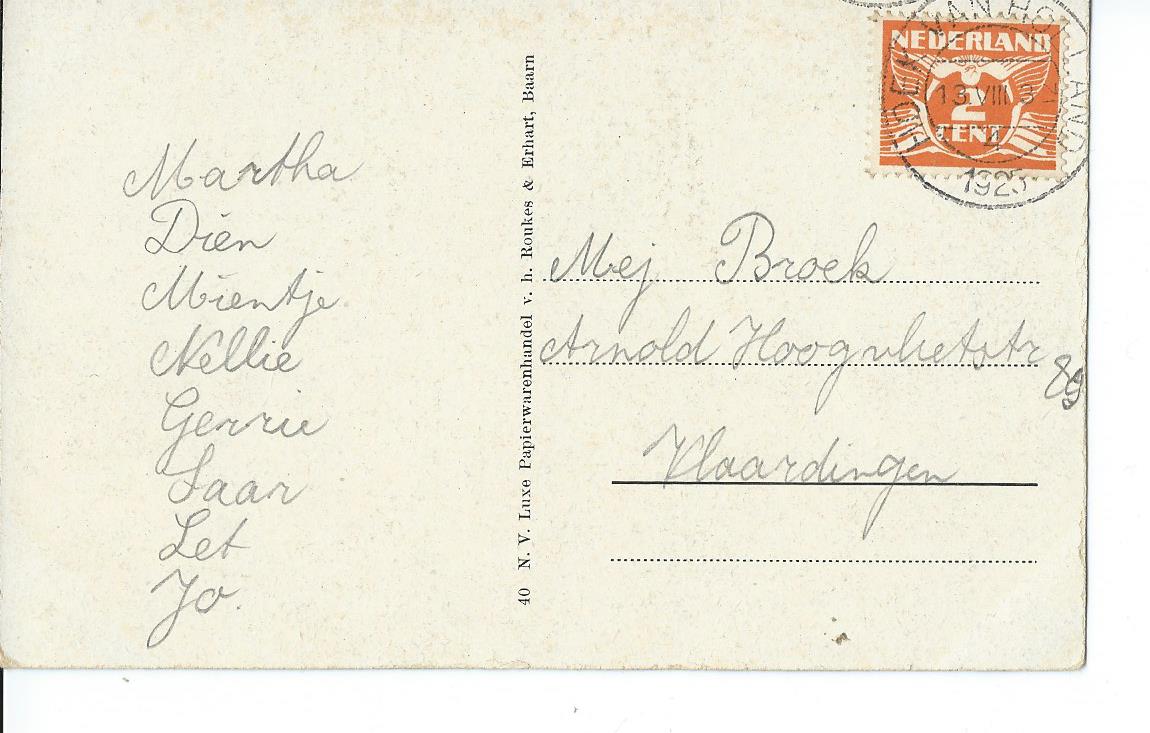 Martha
Dien
Mientje
Nellie
Gerrie
Saar
Let
Jo.
40 N. V. Luxe Papierwarenhandel v. h. Roukes & Erhart, Baarn
NEDERLAND
2
CENT
HOEK VAN HOLLAND
13 VIII
4
1925
Mej Broek
Arnold Hoogvlietstr
89
Vlaardingen